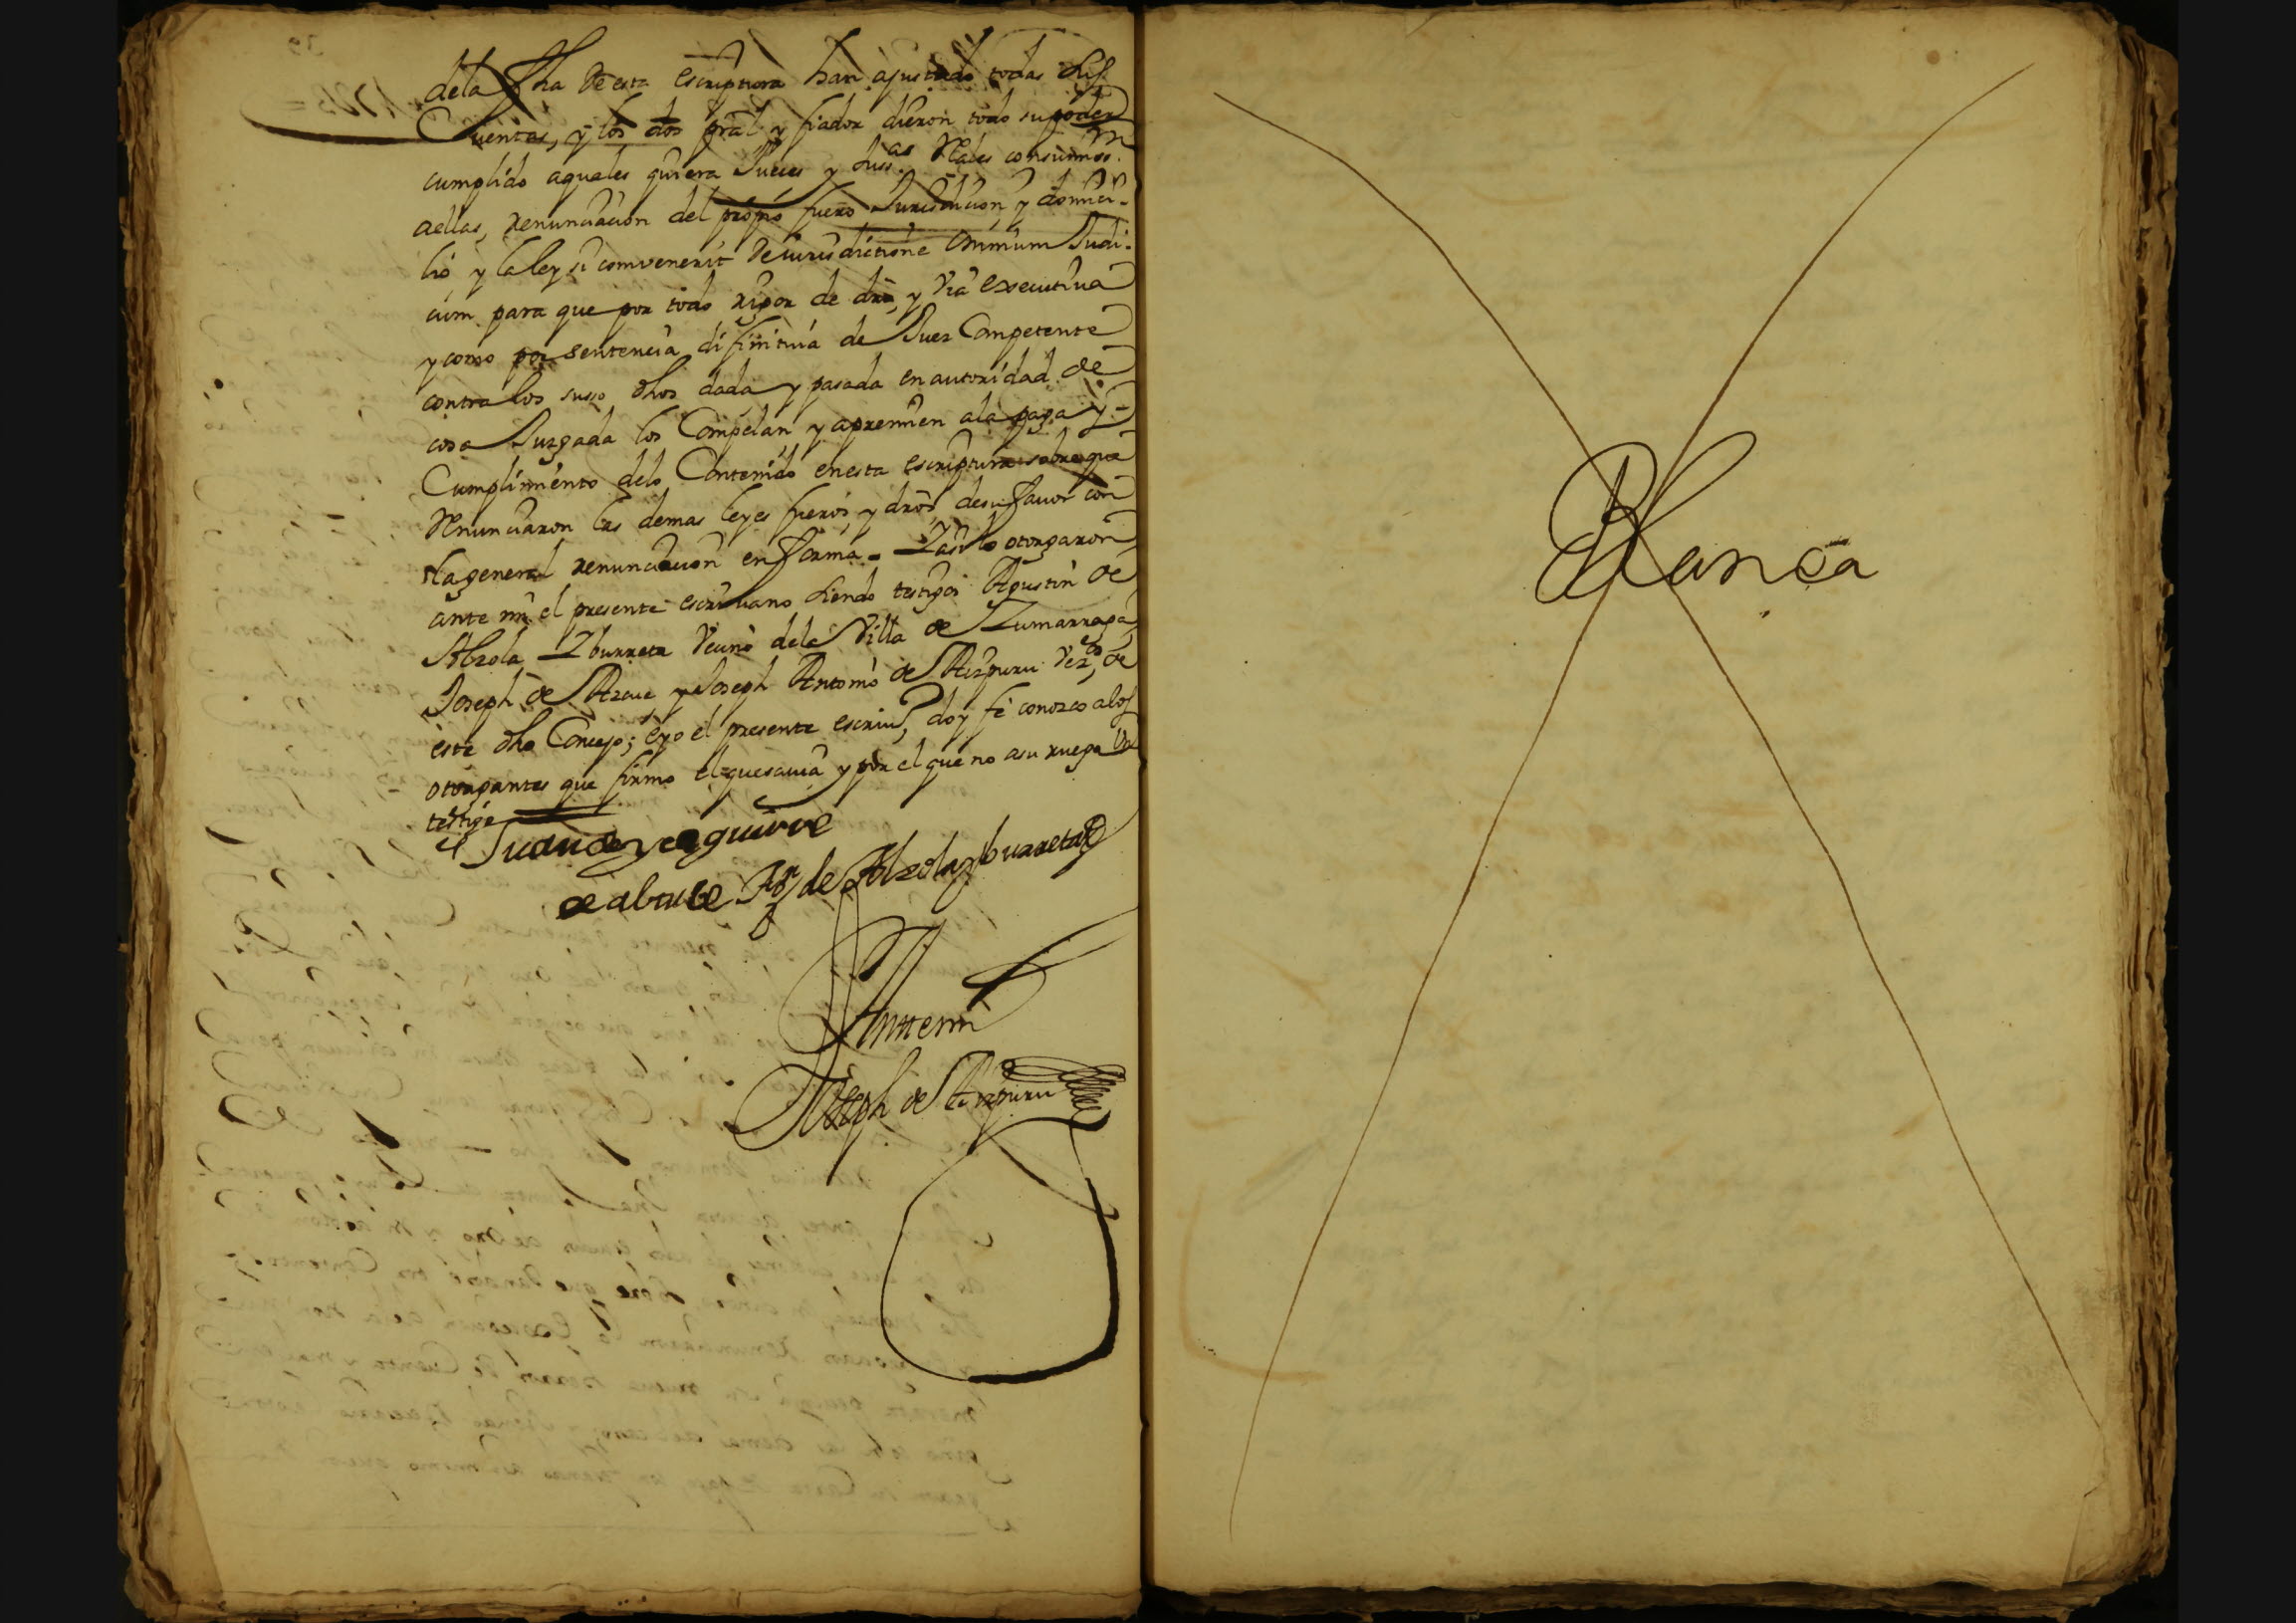 dela fha de esta escriptura han ajustado todas sus
Cuentas, y los dos pral y fiador dieron todo su poder
cumplido aquales quiera Jueces y Juss.as Rales con sumiss.on
aellas, renunciacion del propio fuero Jurisdicion y domici-
lio y la ley si combenerit de iurisdictione omnium Judi-
cum para que por todo rigor de dro, y via executiva
y como por sentencia difinitiva de Juez Competente
contra los suso dhos dada y pasada en autoridad de
cosa Juzgada los Compelan y apremien ala paga y
Cumplimiento delo Contenido en esta escriptura sobre que
Renunciaron las demas leyes fueros y dros de su favor con
la general renunciacion en forma = Y asi lo otorgaron
ante mi el presente escrivano siendo testigos Agustin de
Alzola Yburreta Vecino dela Villa de Zumarraga,
Joseph de Azcue y Joseph Antonio de Aizpuru Vez.os de
este dho Concejo; e yo el presente escriv.o doy fe conozco alos
otorgantes que firmo el que savia y por el que no asu ruego un
testigo
Juan de yeeguirre
de alzole Ag.n de Alzola yburreta
Ante mi
Joseph de Aizpuru
Blanca